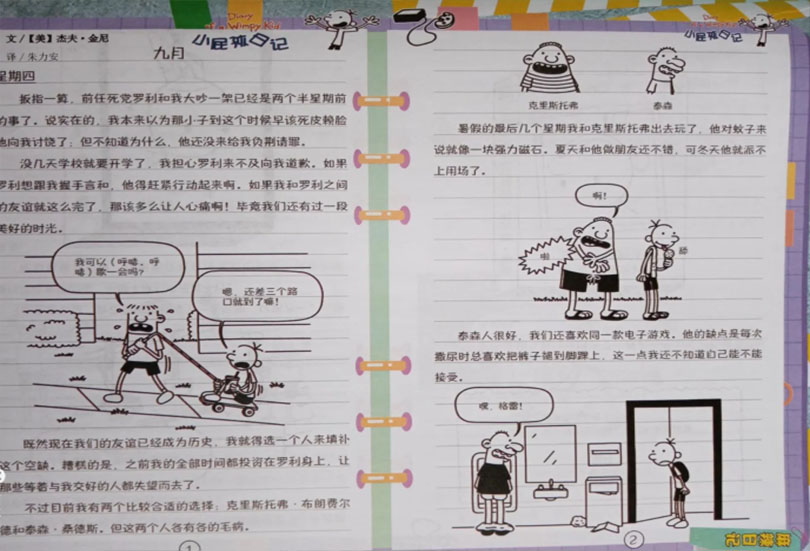 文/【美】杰夫·金尼
译/朱力安
Diary
of a Wimpy Kid
小屁孩日记
九月
星期四
扳指一算，前任死党罗利和我大吵一架已经是两个半星期前
的事了。说实在的，我本来以为那小子到这个时候早该死皮赖脸
地向我讨饶了；但不知道为什么，他还没来给我负荆请罪。
没几天学校就要开学了，我担心罗利来不及向我道歉。如果
罗利想跟我握手言和，他得赶紧行动起来啊。如果我和罗利之间
的友谊就这么完了，那该多么让人心痛啊！毕竟我们还有过一段
美好的时光。
我可以（呼嗬、呼
嗬）歇一会吗？
嗯，还差三个路
口就到了嘛！
既然现在我们的友谊已经成为历史，我就得选一个人来填补
这个空缺。糟糕的是，之前我的全部时间都投资在罗利身上，让
那些等着与我交好的人都失望而去了。
不过目前我有两个比较合适的选择：克里斯托弗·布朗费尔
德和泰森·桑德斯。但这两个人各有各的毛病。
1
小屁孩日记
克里斯托弗
泰森
暑假的最后几个星期我和克里斯托弗出去玩了，他对蚊子来
说就像一块强力磁石。夏天和他做朋友还不错，可冬天他就派不
上用场了。
啊！
啪
舔
泰森人很好，我们还喜欢同一款电子游戏。他的缺点是每次
撒尿时总喜欢把裤子褪到脚踝上，这一点我还不知道自己能不能
接受。
嘿，格雷！
2